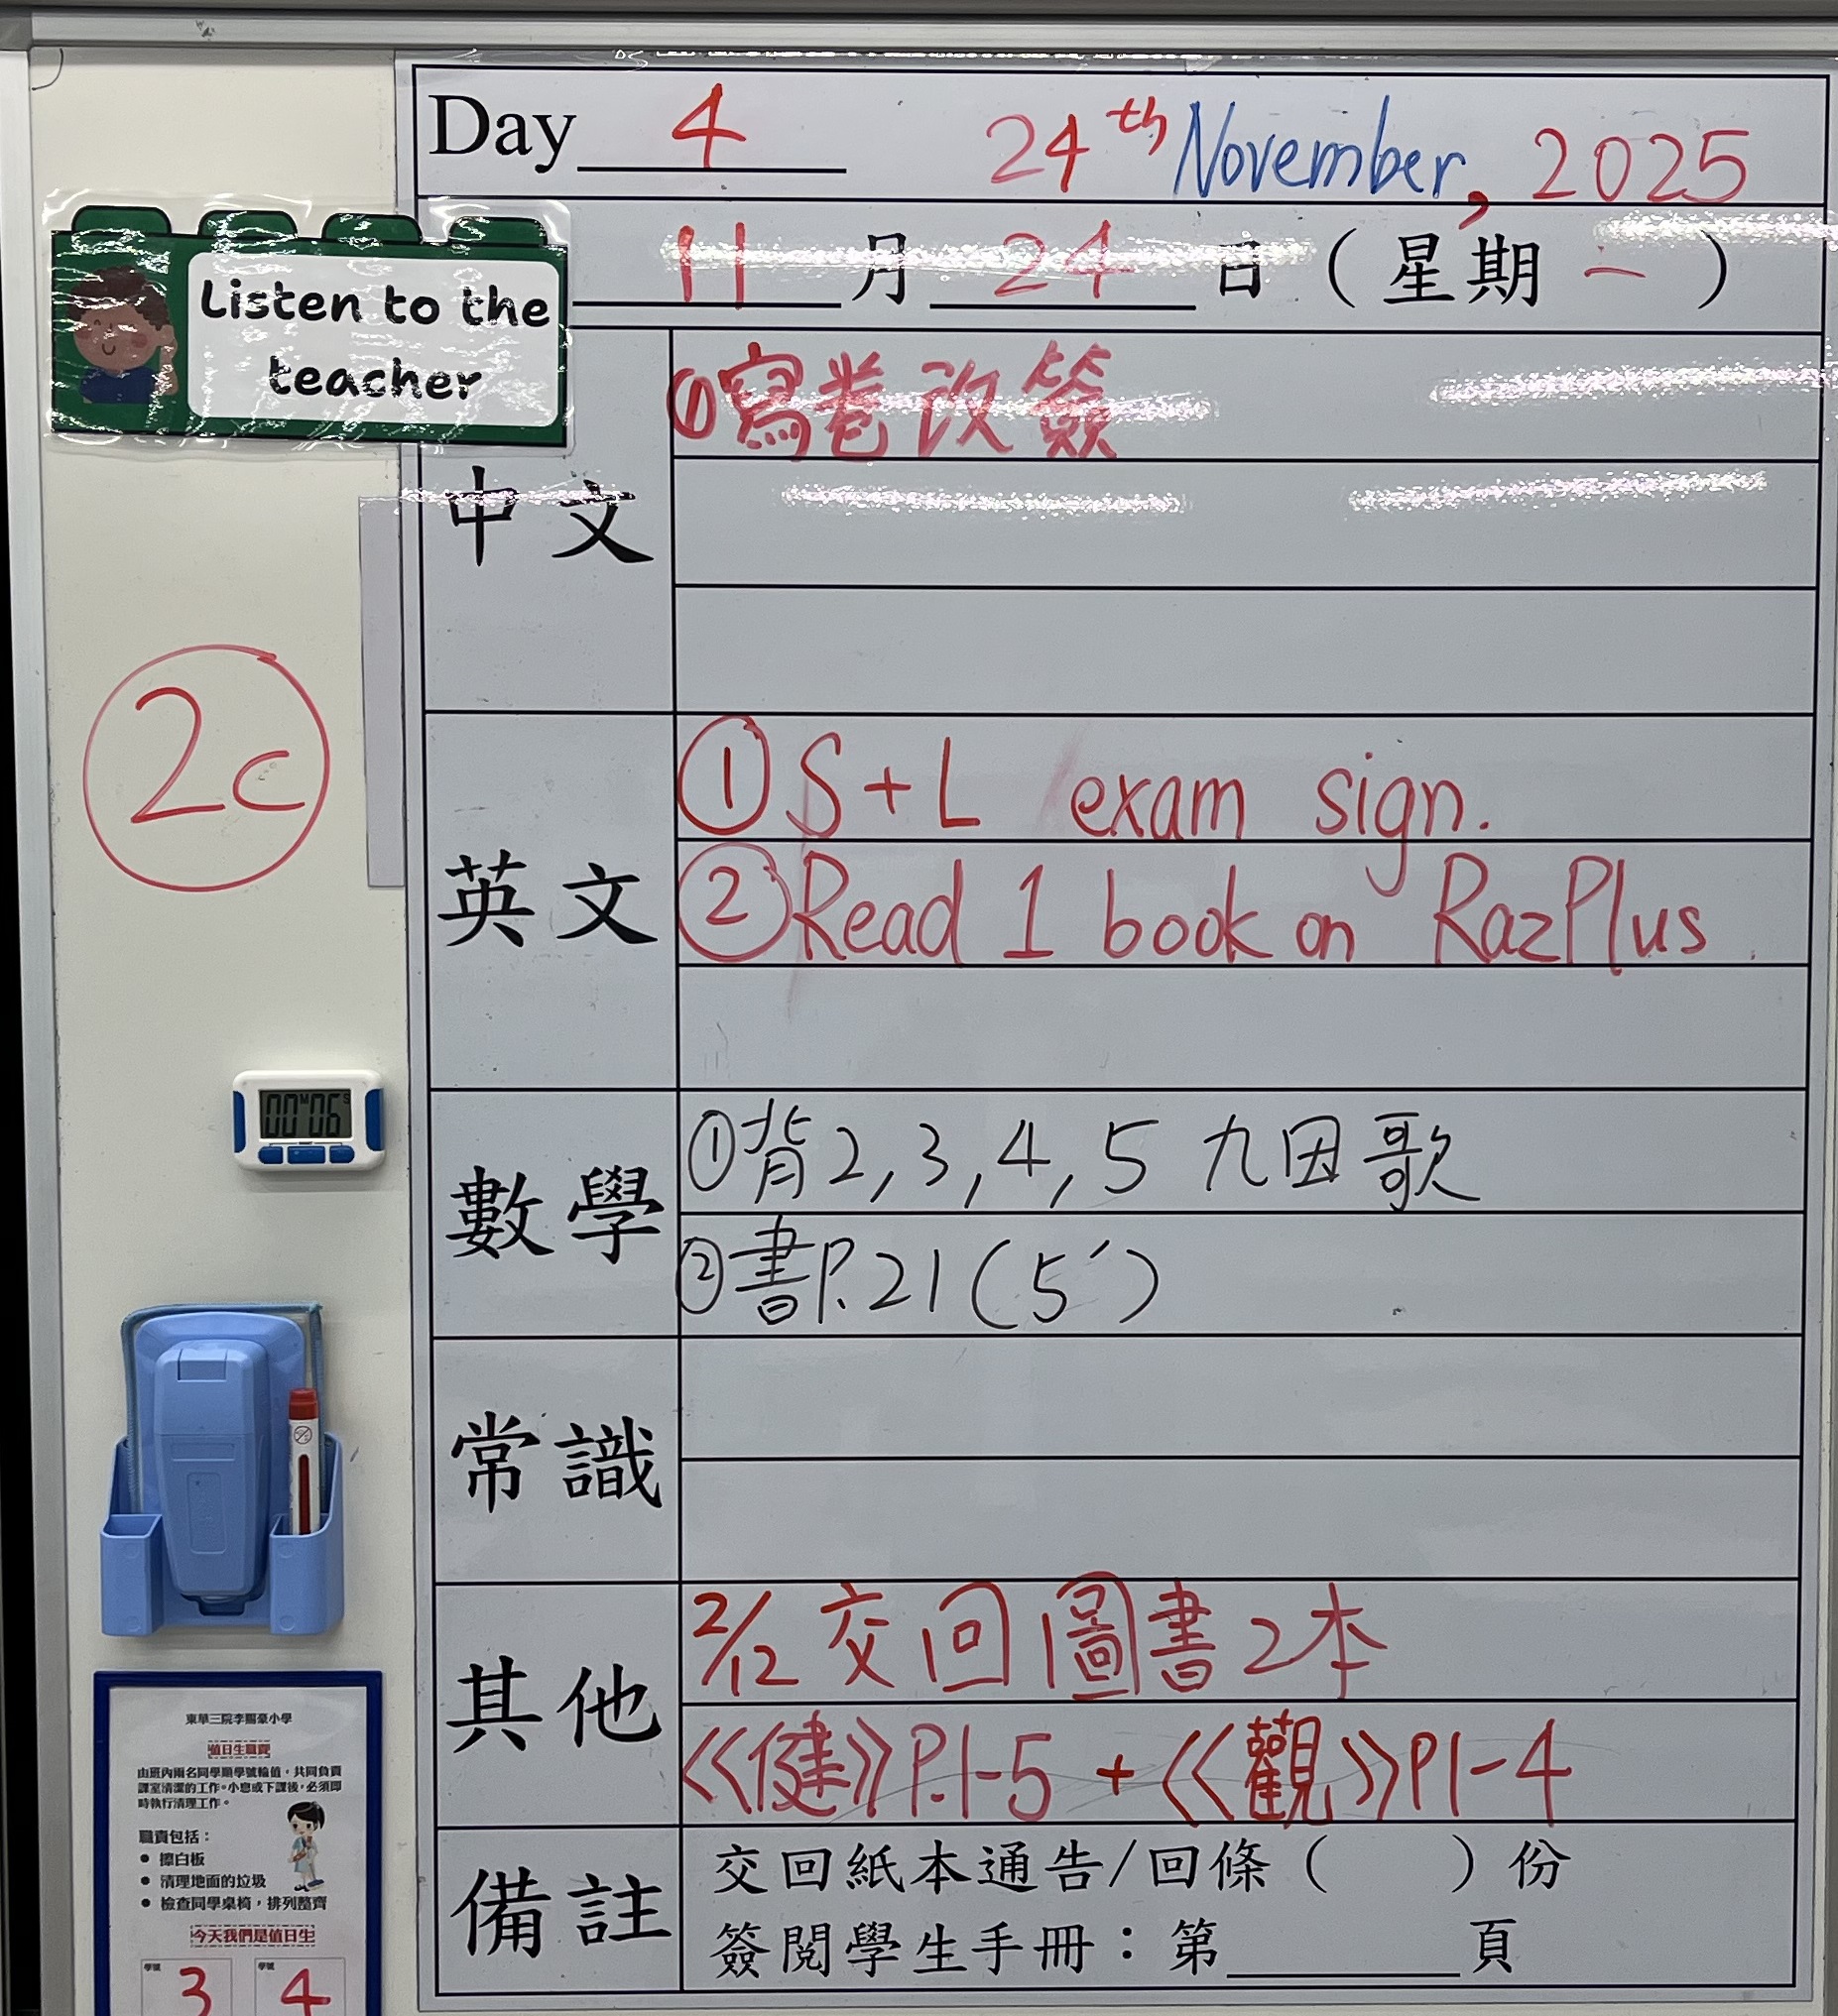 Day 4 24th November, 2025
Listen to the
teacher
11月24日（星期一）
中文
①寫卷改簽
2c
英文
①S+L exam sign.
②Read 1 book on RazPlus.
00M06S
數學
①背2,3,4,5 九因歌
②書P.21(5')
常識
其他
2/12 交回圖書2本
《健》P.1-5 + 《觀》P1-4
備註
交回紙本通告/回條（　　）份
簽閱學生手冊：第______頁
東華三院李賜豪小學
值日生職責
由班內兩名同學順學號輪值，共同負責
課室清潔的工作。小息或下課後，必須即
時執行清理工作。
職責包括：
● 擦白板
● 清理地面的垃圾
● 檢查同學桌椅，排列整齊
今天我們是值日生
學號 3 學號 4